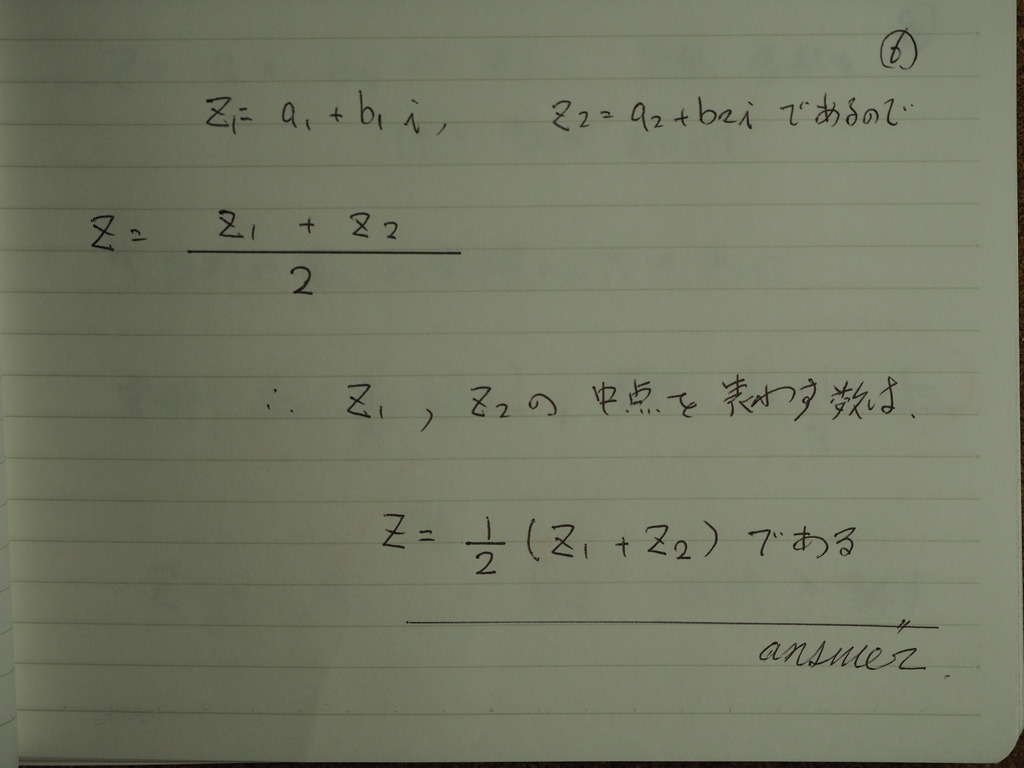 ⑥
Z₁= a₁ + b₁ i, Z₂= a₂+b₂i であるので
Z= (Z₁ + Z₂)/2
∴ Z₁, Z₂の 中点を表わす数は、
Z= 1/2 (Z₁ + Z₂) である
answer.